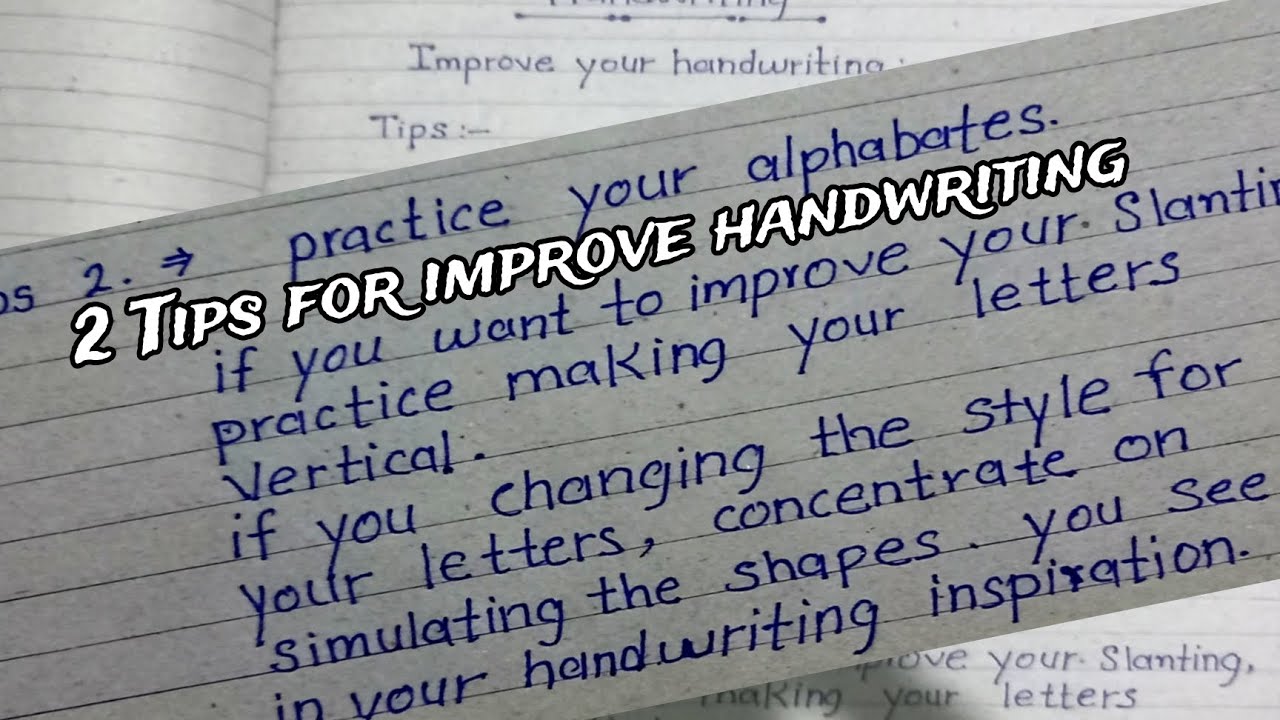 Handwriting
Improve your handwriting :
Tips :-
2. ⇒ practice your alphabates.
2 TIPS FOR IMPROVE HANDWRITING
if you want to improve your. Slantin
practice making your letters
Vertical.
if you changing the style for
your letters, concentrate on
simulating the shapes. you see
in your handwriting inspiration.
your. Slanting,
making your letters